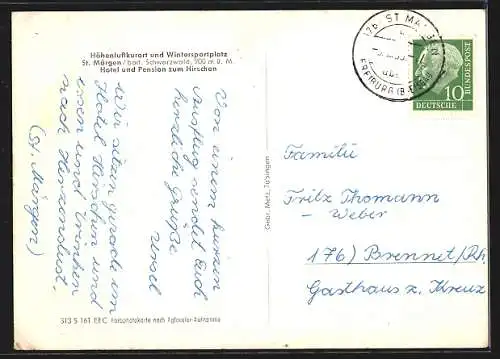 Höhenluftkurort und Wintersportplatz
St. Märgen / bad. Schwarzwald, 900 m ü. M.
Hotel und Pension zum Hirschen
Von einem kurzen
Ausflug sendet Euch
herzliche Grüße
Ursel
Wir sitzen gerade im
Hotel Hirschen und
essen und trinken
nach Herzenslust.
(St. Märgen)
313 S 161 EEC Farbanstokarte nach Agfacolor-Aufnahme
Gebr. Metz, Tübingen
17b ST MÄRGEN
FREIBURG
10
DEUTSCHE
BUNDESPOST
Familie
Fritz Thomann
- Weber
17b) Brennet/Rh.
Gasthaus z. Kreuz